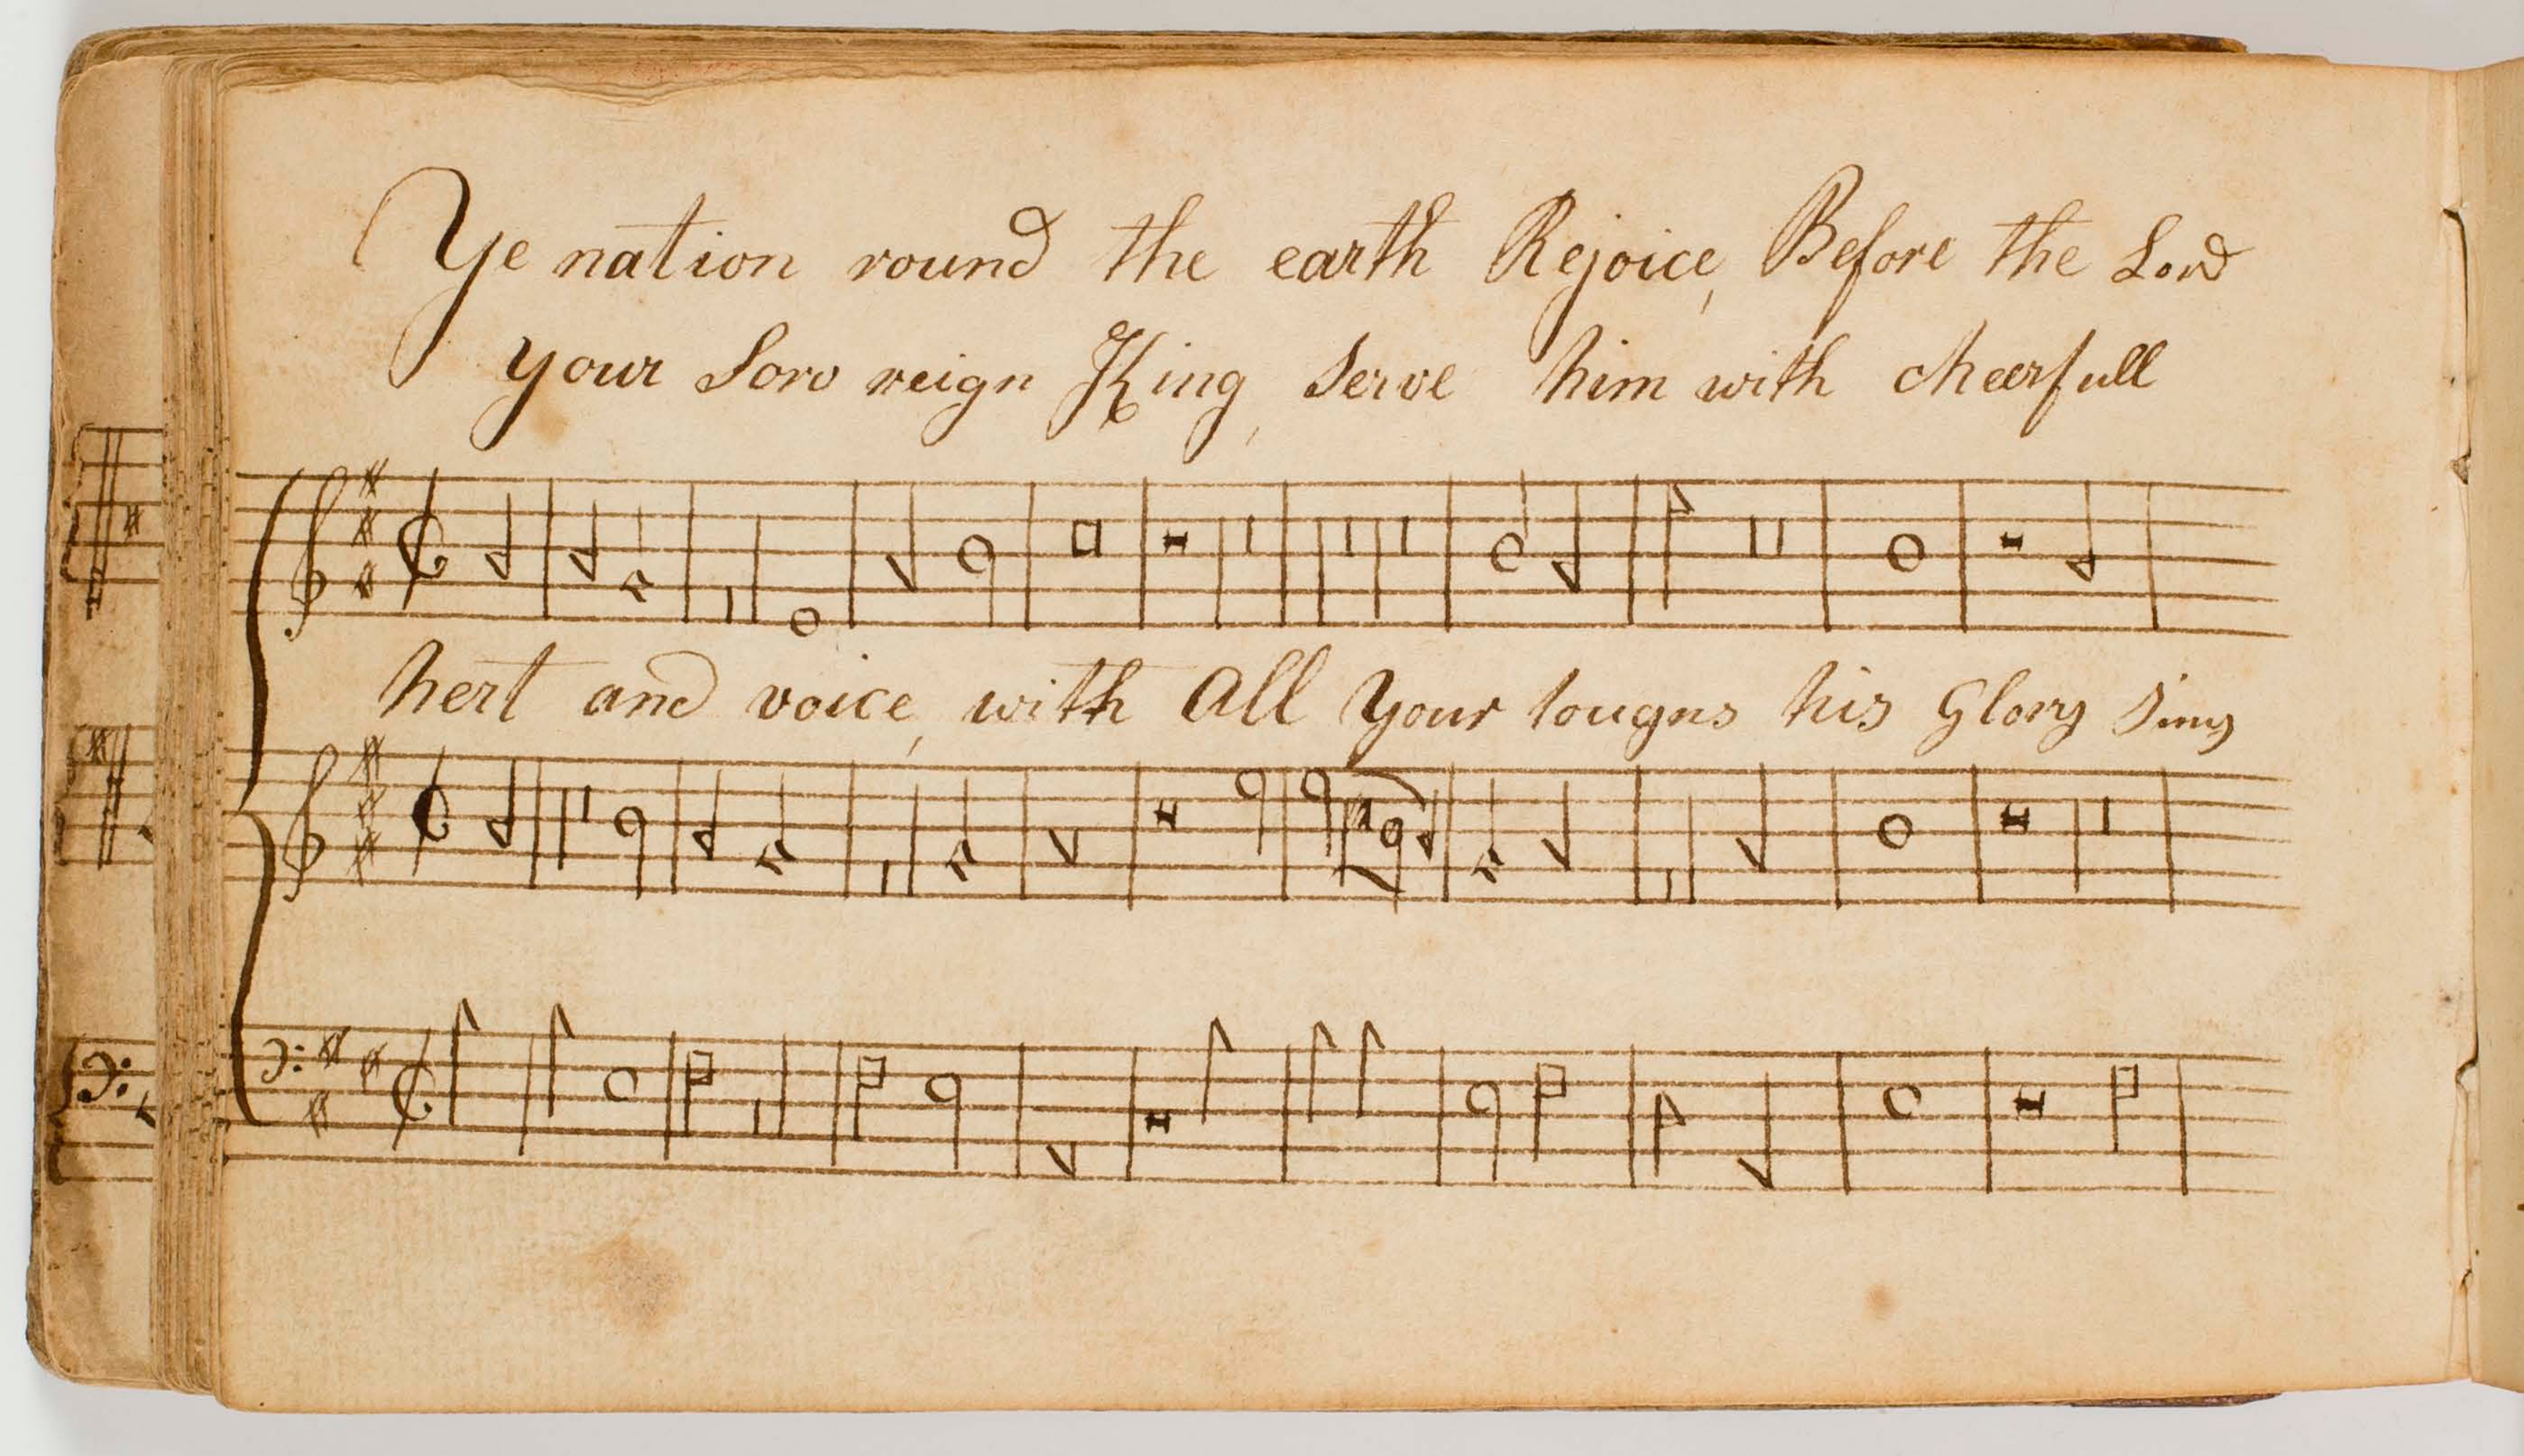 Ye nation round the earth Rejoice, Before the Lord
your Sove reign King, serve him with cheerfull
hert and voice, with All your tougns his Glory sing